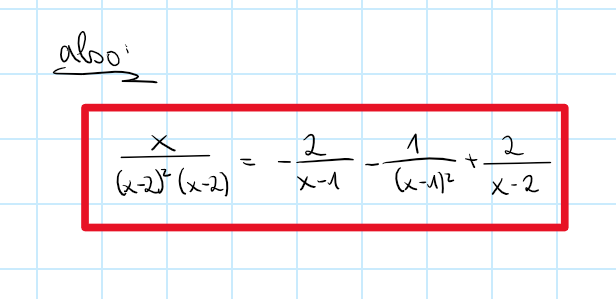 also:
x/(x-2)² (x-2) = - 2/(x-1) - 1/(x-1)² + 2/(x-2)